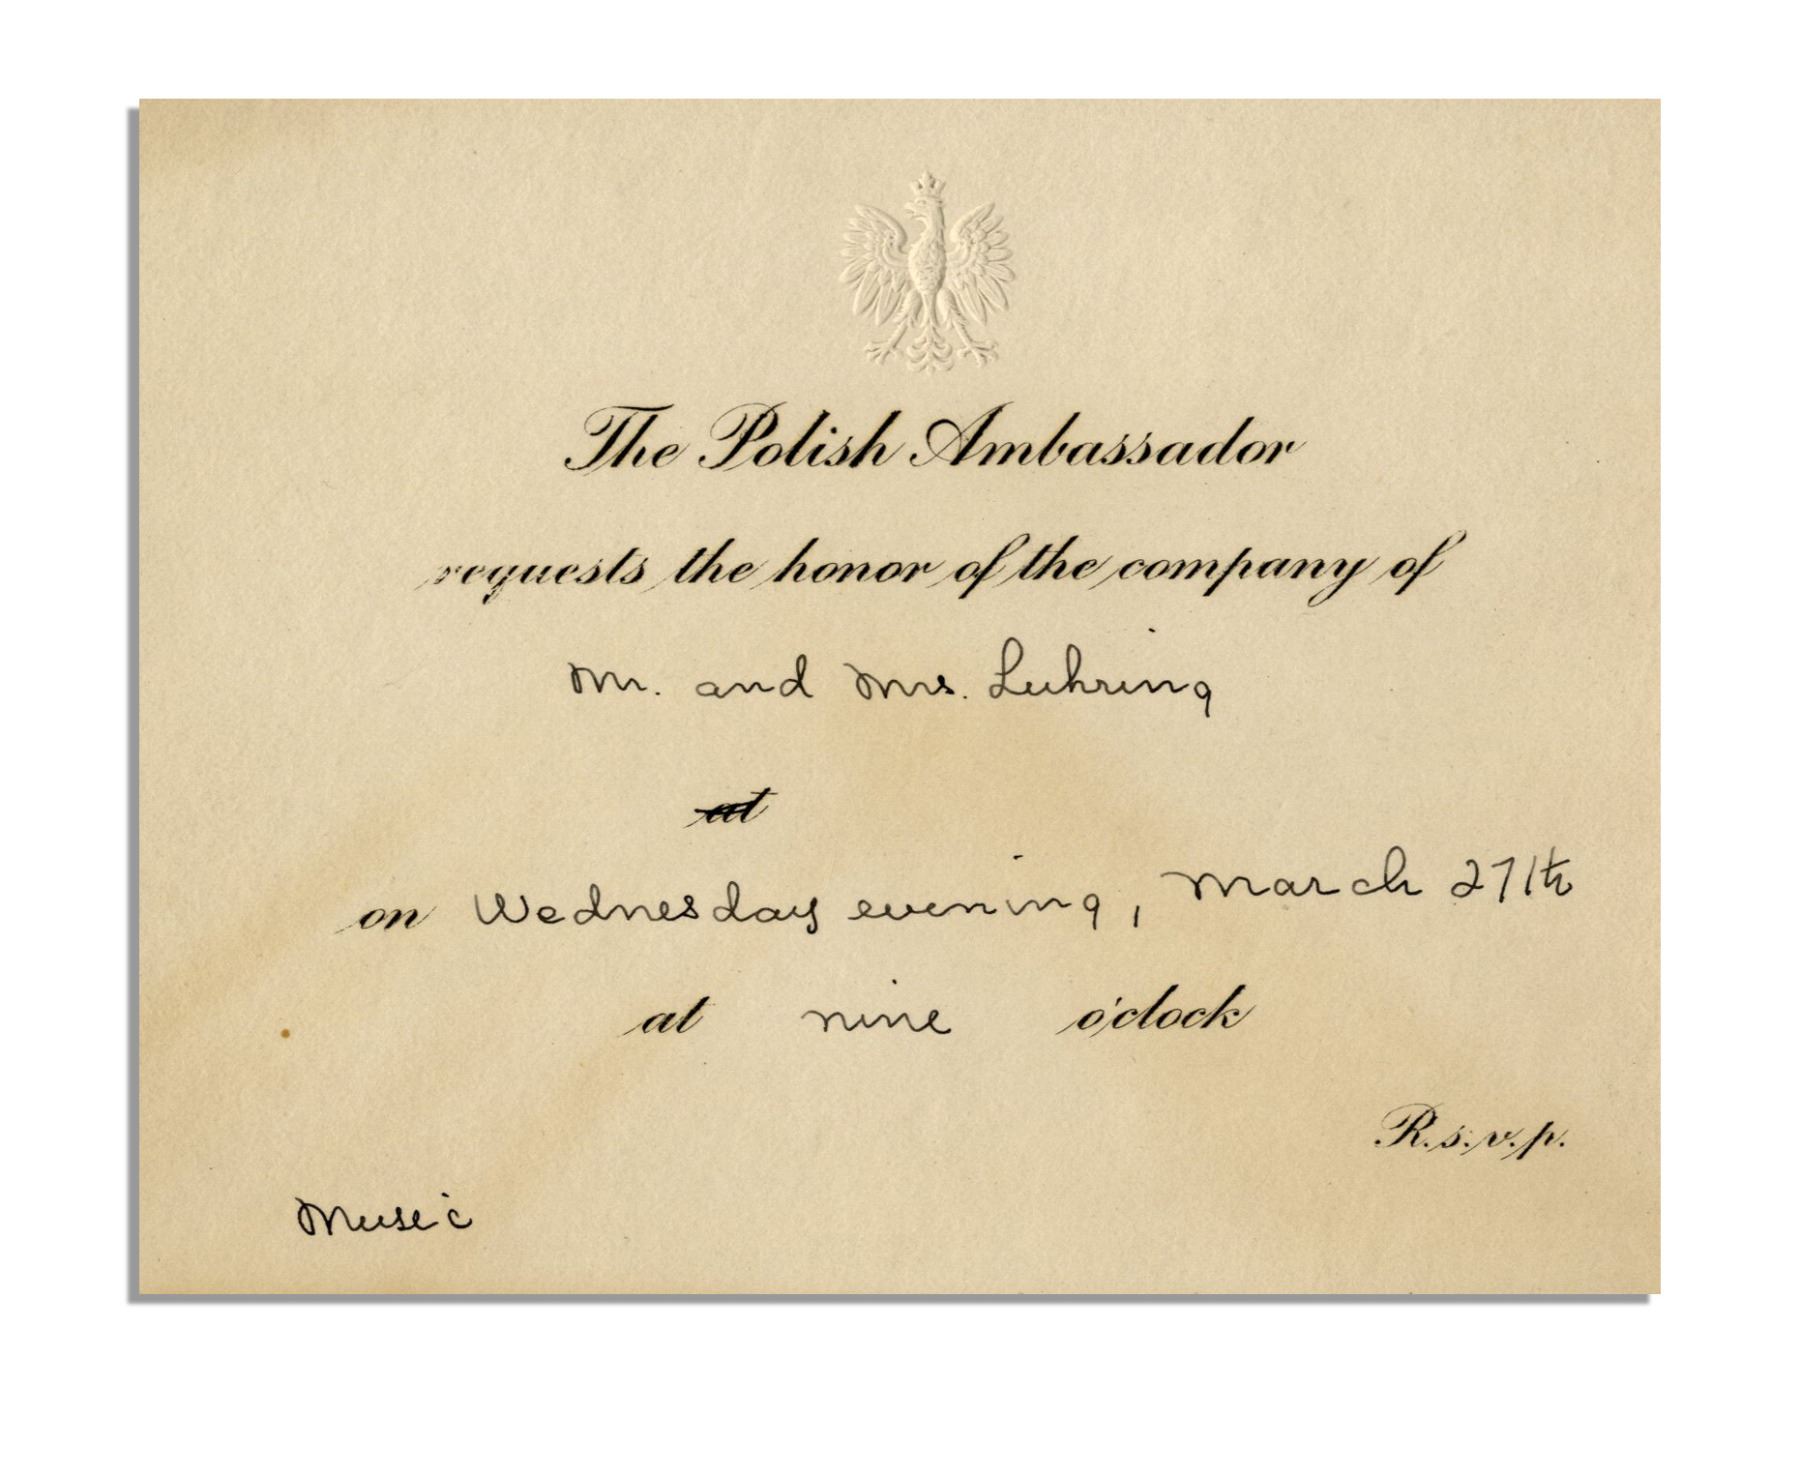 The Polish Ambassador
requests the honor of the company of
Mr. and Mrs. Luhring
at
on Wednesday evening, March 27th
at nine o'clock
R.s.v.p.
Music